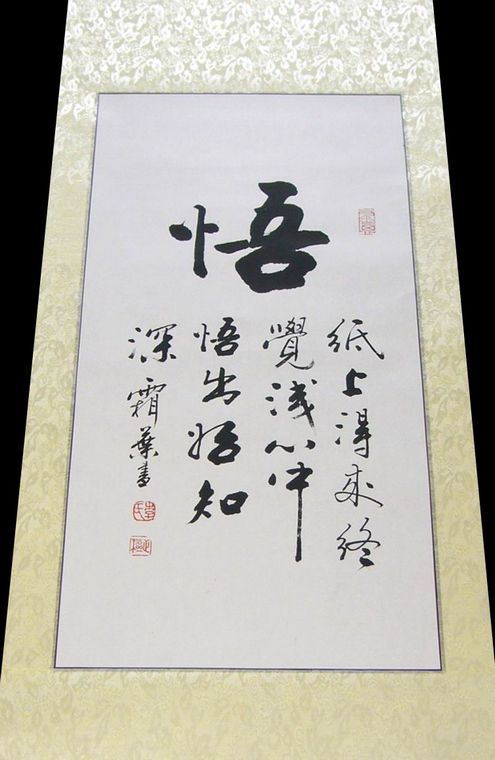 悟
紙上得來終
覺淺心中
悟出始知
深 霜葉書